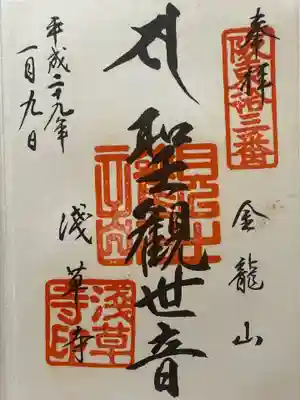 奉拝
金龍山
聖観世音
浅草寺
平成二十九年
一月九日
坂東拾三番
浅草寺印